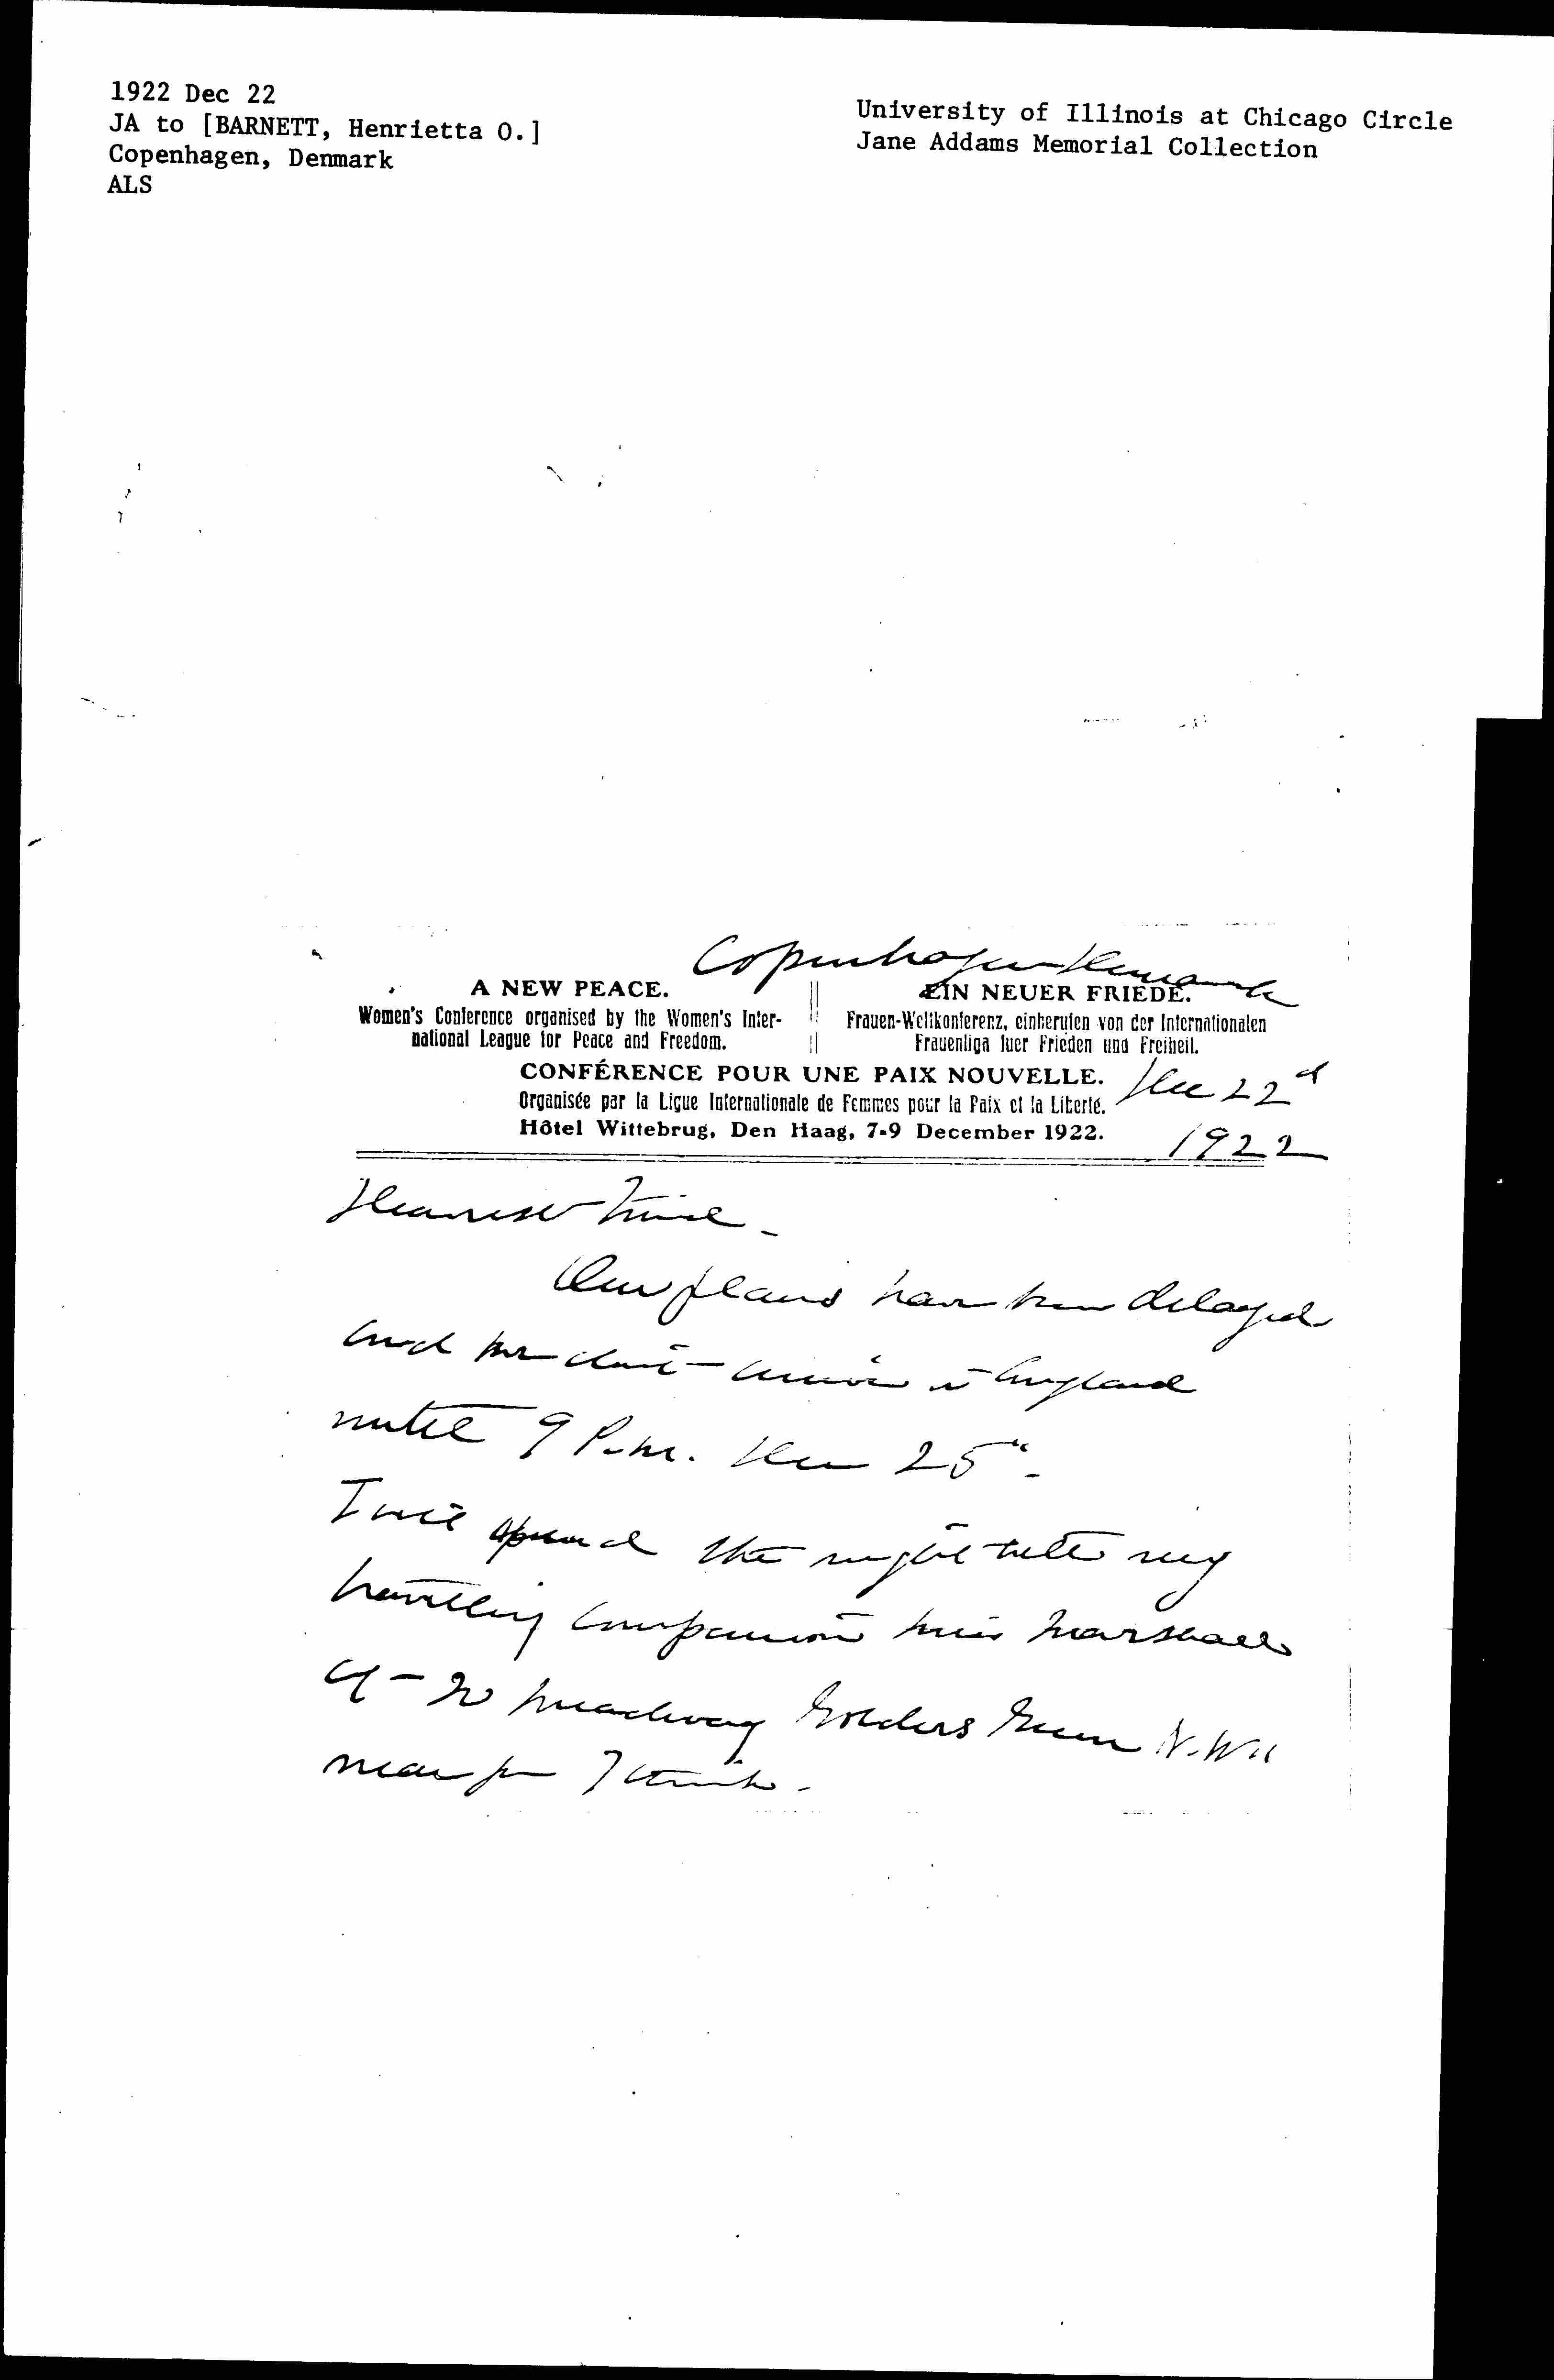 1922 Dec 22
JA to [BARNETT, Henrietta O.]
Copenhagen, Denmark
ALS
University of Illinois at Chicago Circle
Jane Addams Memorial Collection
Copenhagen Denmark
A NEW PEACE.
Women's Conference organised by the Women's Inter-
national League for Peace and Freedom.
EIN NEUER FRIEDE.
Frauen-Weltkonferenz, einberufen von der Internationalen
Frauenliga fuer Frieden und Freiheit.
CONFÉRENCE POUR UNE PAIX NOUVELLE.
Organisée par la Ligue Internationale de Femmes pour la Paix et la Liberté.
Hôtel Wittebrug, Den Haag, 7-9 December 1922.
Dec 22d
1922
Dearest Friend -
Our plans have been delayed
and we don't arrive in England
until 9 P.m. Dec 25" -
I will spend the night with my
travelling companion Miss Marshall
at Meadway Golders Green N.W11
near you I think -